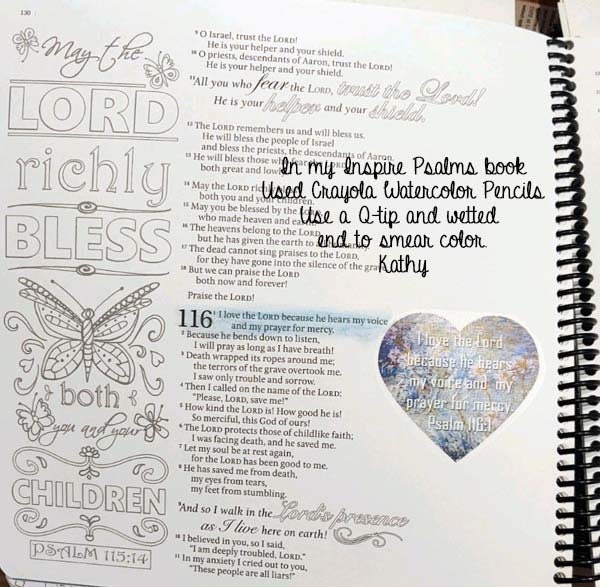 130
May the
LORD
richly
BLESS
both
you and your
CHILDREN
PSALM 115:14
9 O Israel, trust the LORD!
He is your helper and your shield.
10 O priests, descendants of Aaron, trust the LORD!
He is your helper and your shield.
11 All you who fear the LORD, trust the Lord!
He is your helper and your shield.
12 The LORD remembers us and will bless us.
He will bless the people of Israel
and bless the priests, the descendants of Aaron.
13 He will bless those who fear the LORD,
both great and lowly.
14 May the LORD richly
both you and your children.
15 May you be blessed by the
who made heaven and earth.
16 The heavens belong to the LORD,
but he has given the earth to
17 The dead cannot sing praises to the LORD,
for they have gone into the silence of the grave.
18 But we can praise the LORD
both now and forever!
Praise the LORD!
In my Inspire Psalms book
Used Crayola Watercolor Pencils
Use a Q-tip and wetted
end to smear color.
Kathy
116 1 I love the LORD because he hears my voice
and my prayer for mercy.
2 Because he bends down to listen,
I will pray as long as I have breath!
3 Death wrapped its ropes around me;
the terrors of the grave overtook me.
I saw only trouble and sorrow.
4 Then I called on the name of the LORD:
"Please, LORD, save me!"
5 How kind the LORD is! How good he is!
So merciful, this God of ours!
6 The LORD protects those of childlike faith;
I was facing death, and he saved me.
7 Let my soul be at rest again,
for the LORD has been good to me.
8 He has saved me from death,
my eyes from tears,
my feet from stumbling.
9 And so I walk in the Lord's presence
as I live here on earth!
10 I believed in you, so I said,
"I am deeply troubled, LORD."
11 In my anxiety I cried out to you,
"These people are all liars!"
I love the Lord
because he hears
my voice and my
prayer for mercy.
Psalm 116:1